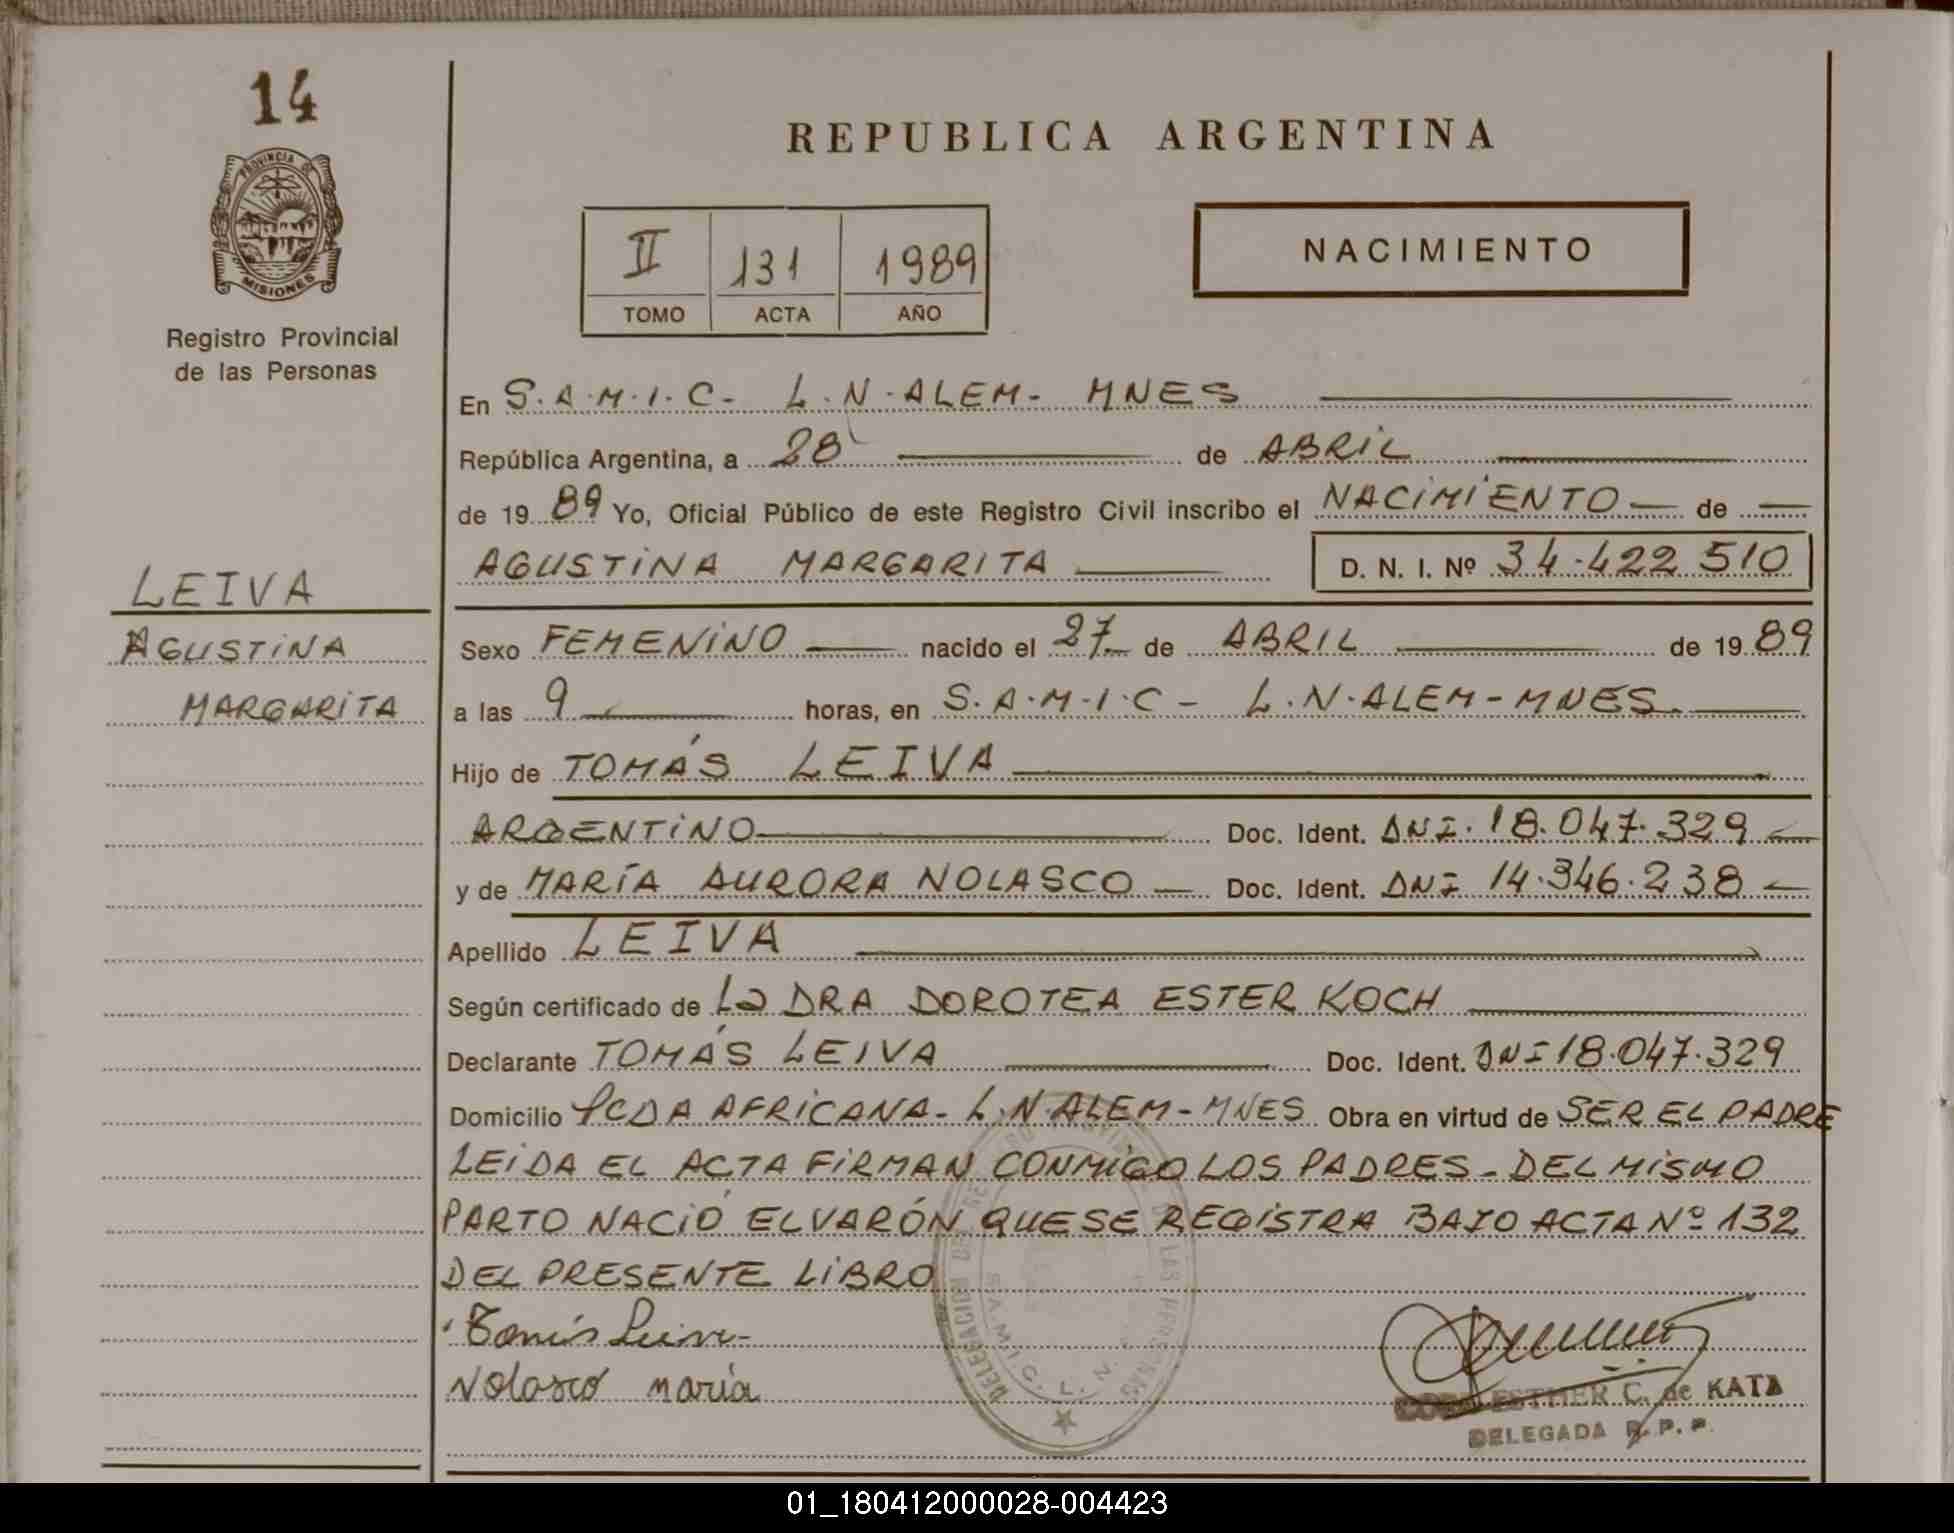 14
PROVINCIA DE
MISIONES
Registro Provincial
de las Personas
REPUBLICA ARGENTINA
II 131 1989
TOMO ACTA AÑO
NACIMIENTO
En S.A.M.I.C- L.N.ALEM- MNES
República Argentina, a 28 de ABRIL
de 19 89 Yo, Oficial Público de este Registro Civil inscribo el NACIMIENTO de
AGUSTINA MARGARITA D. N. I. Nº 34.422 510
LEIVA
AGUSTINA
MARGARITA
Sexo FEMENINO nacido el 27 de ABRIL de 19 89
a las 9 horas, en S.A.M.I.C- L.N.ALEM-MNES.
Hijo de TOMÁS LEIVA
ARGENTINO Doc. Ident. DNI. 18.047.329
y de MARÍA AURORA NOLASCO Doc. Ident. DNI 14.346.238
Apellido LEIVA
Según certificado de La DRA DOROTEA ESTER KOCH
Declarante TOMÁS LEIVA Doc. Ident. DNI 18.047.329
Domicilio PCDA AFRICANA- L.N.ALEM-MNES Obra en virtud de SER EL PADRE
LEIDA EL ACTA FIRMAN CONMIGO LOS PADRES- DEL MISMO
PARTO NACIÓ EL VARÓN QUE SE REGISTRA BAJO ACTA Nº 132
DEL PRESENTE LIBRO
Tomás Leiva-
Nolasco María
ESTHER C. de KATA
DELEGADA R. P. P.
01_180412000028-004423